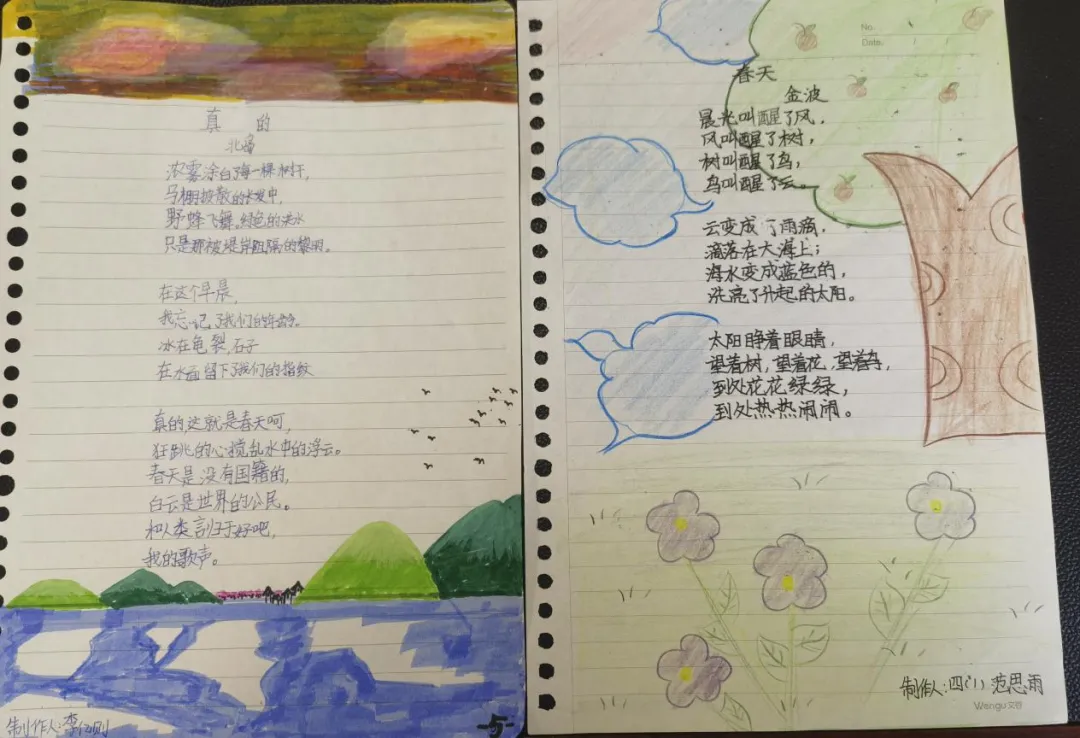 真 的
北岛
浓雾涂白了每一棵树干,
马棚披散的长发中,
野蜂飞舞。绿色的洪水
只是那被堤岸阻隔的黎明。
在这个早晨,
我忘记了我们的年龄。
冰在龟裂,石子
在水面留下了我们的指纹
真的,这就是春天呵,
狂跳的心搅乱水中的浮云。
春天是没有国籍的,
白云是世界的公民。
和人类言归于好吧,
我的歌声。
制作人:李
-5-
No.
Date. / /
春天
金波
晨光叫醒了风,
风叫醒了树,
树叫醒了鸟,
鸟叫醒了云。
云变成了雨滴,
滴落在大海上;
海水变成蓝色的,
洗亮了升起的太阳。
太阳睁着眼睛,
望着树,望着花,望着
到处花花绿绿,
到处热热闹闹。
制作人:四(1)范思雨
Wengu 文谷